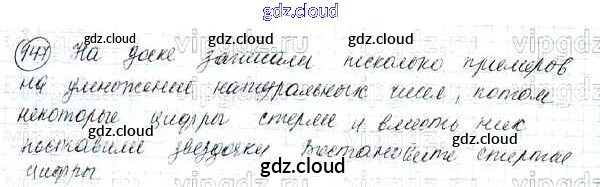 gdz.cloud
947 На доске записали несколько примеров
gdz.cloud gdz.cloud
на умножение натуральных чисел, потом
некоторые цифры стерли и вместо них
gdz.cloud gdz.cloud
поставили звездочки Восстановите стертые
gdz.cloud
цифры